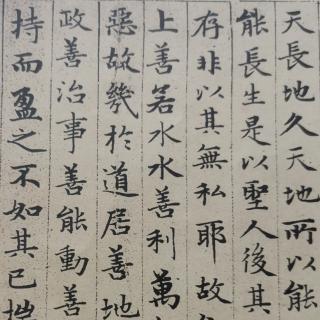 天長地久天地所以能
能長生是以聖人後其
存非以其無私耶故
上善若水水善利萬
惡故幾於道居善地
政善治事善能動善
持而盈之不如其已揣